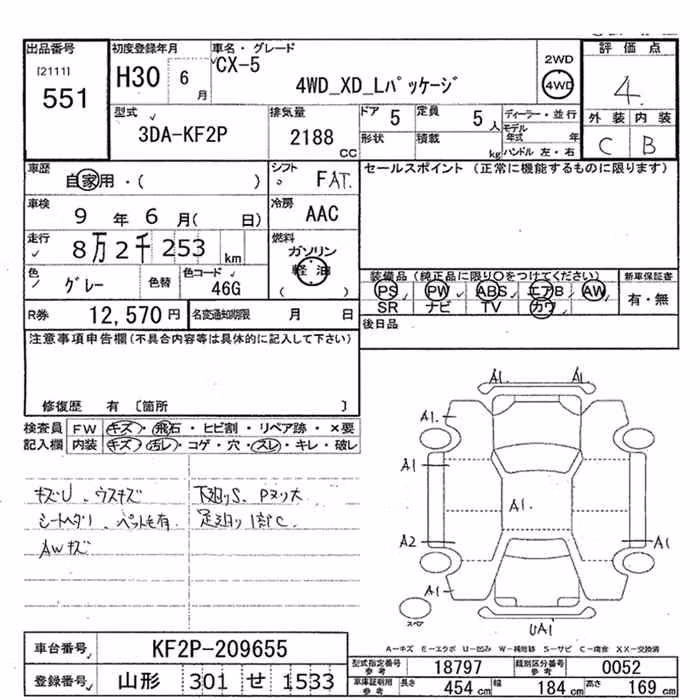 出品番号 初度登録年月 車名・グレード 評価点
[2111] 551 H30 6月 CX-5 2WD
4WD_XD_Lパッケージ 4WD 4
型式 排気量 ドア 5 定員 5人 ディーラー・並行 外装 内装
3DA-KF2P 2188 CC 形状 積載 kg モデル年式 年 ハンドル 左・右 C B
車歴 自家用・( ) シフト FAT. セールスポイント (正常に機能するものに限ります)
車検 9年 6月( 日) 冷房 AAC
走行 8万2千253km 燃料 ガソリン 軽油 ( )
色 グレー 色替 色コード 46G 装備品(純正品に限り○をつけてください) 新車保証書
PS PW ABS エアB AW 有・無
SR ナビ TV カワ
R券 12,570円 名変通知期限 月 日 後日品
注意事項申告欄(不具合内容等は具体的に記入して下さい)
修復歴 有 〔箇所 〕
検査員 FW キズ・飛石・ヒビ割・リペア跡・×要
記入欄 内装 キズ・汚レ・コゲ・穴・スレ・キレ・破レ
A1. A1.
A1.
A1
A1.
A2 A1
A1
UA1
キズU. ウスキズ 下廻りS. Pヌリ大
シートヘタリ. ペット毛有. 足廻り1部C.
AWキズ
A-キズ E-エクボ U-凹み W-補修跡 S-サビ C-腐食 XX-交換済
車台番号 KF2P-209655 型式指定番号 参考 18797 類別区分番号 参考 0052
登録番号 山形 301 せ 1533 車庫証明用 参考 長さ 454cm 幅 184cm 高さ 169cm